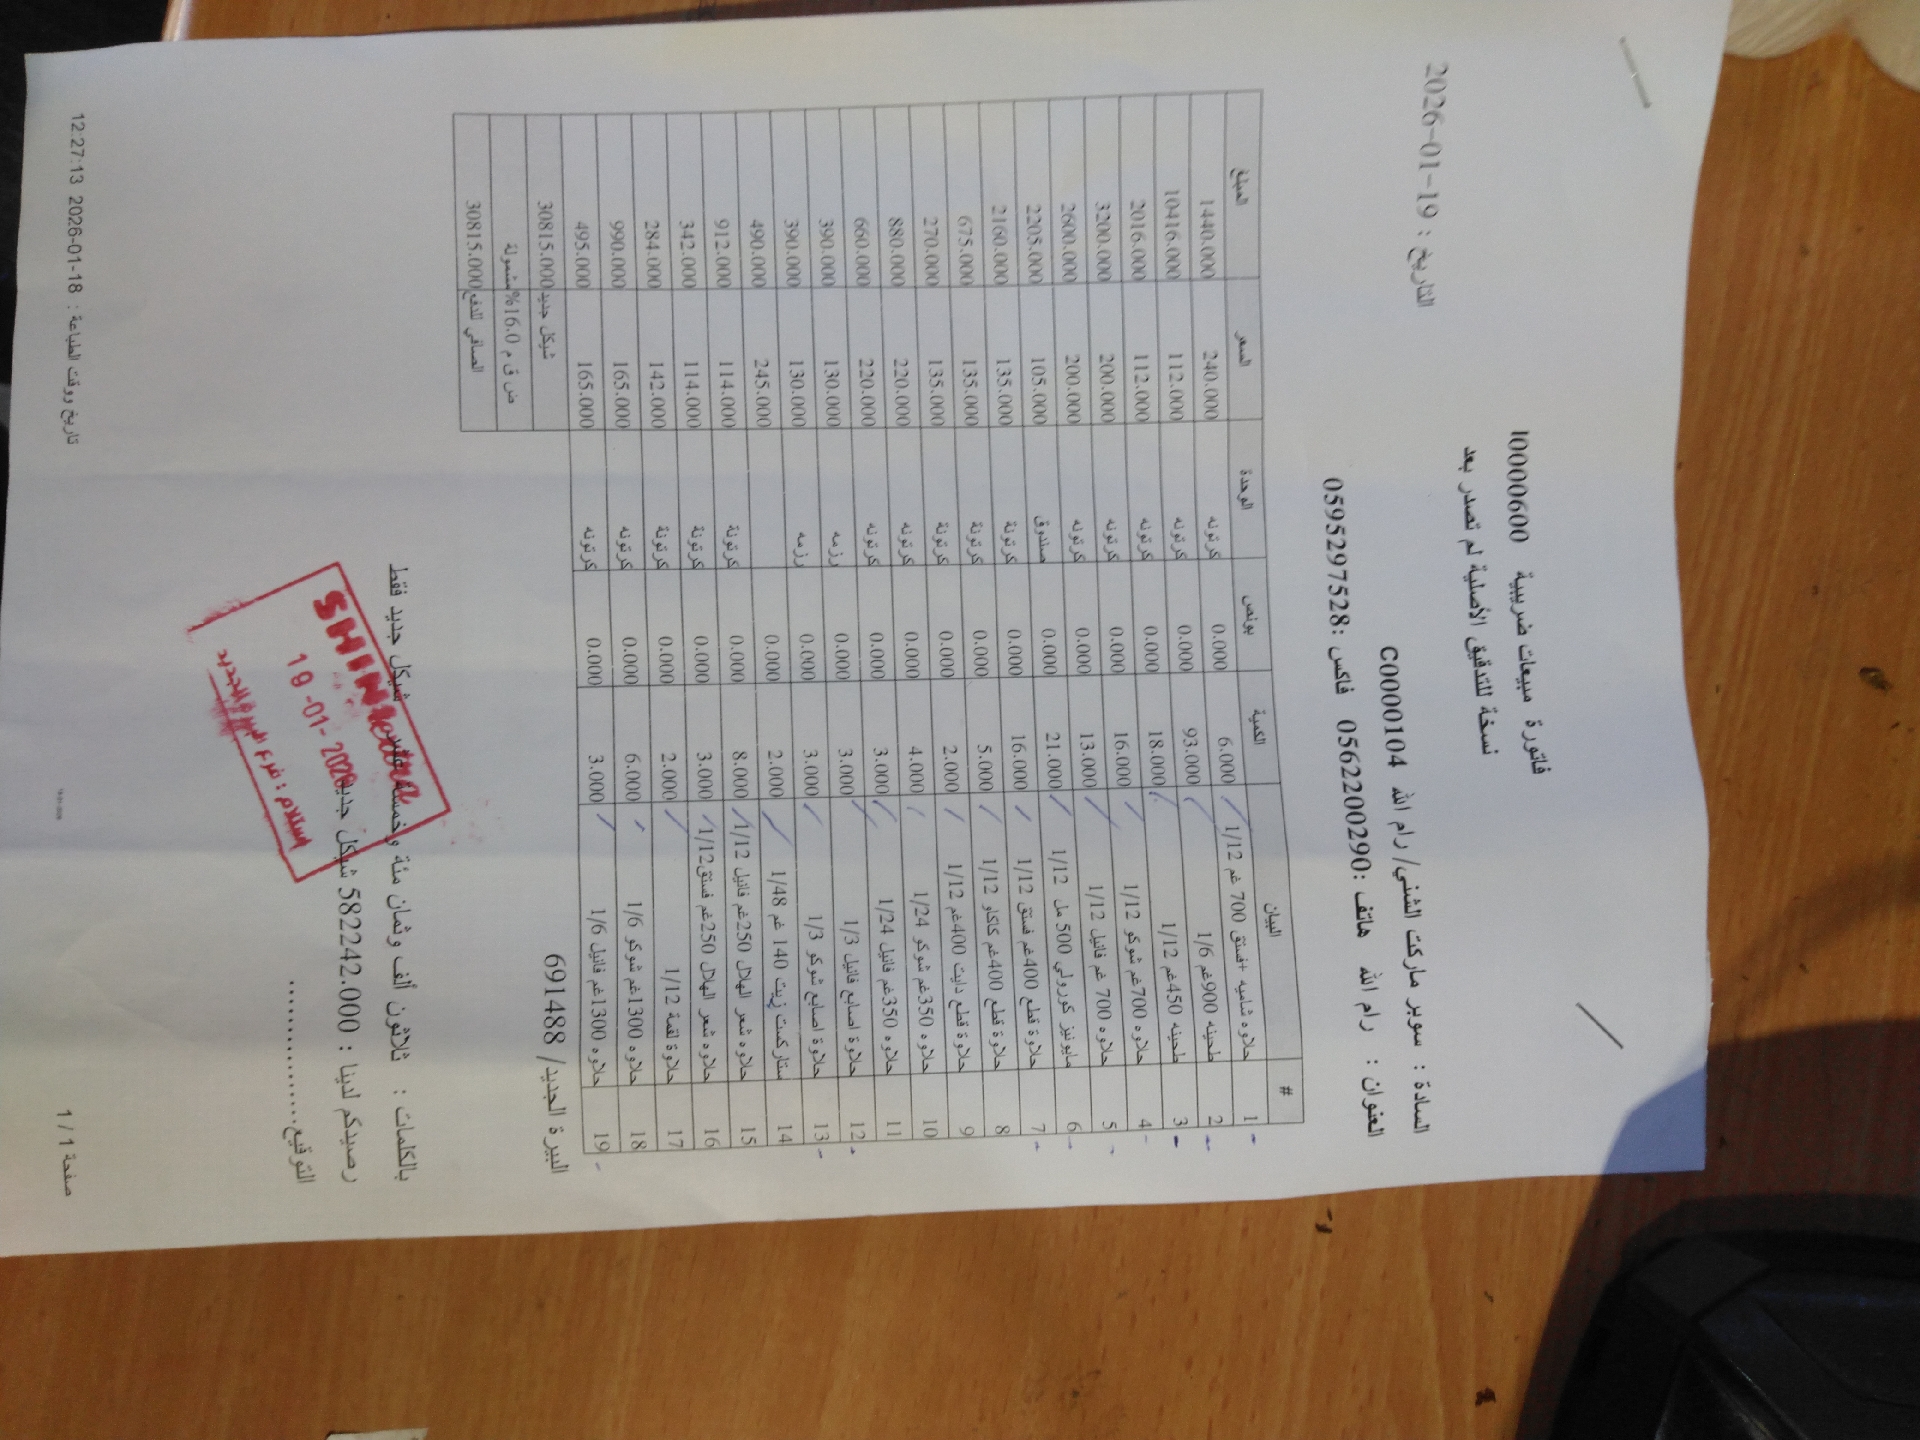 فاتورة مبيعات ضريبية 10000600
نسخة للتدقيق الأصلية لم تصدر بعد
التاريخ : 19-01-2026
السادة : سوبر ماركت الشني/ رام الله C0000104
العنوان : رام الله هاتف :0562200290 فاكس :0595297528
# البيان الكمية بونص الوحدة السعر المبلغ
1 حلاوه شاميه +فستق 700 غم 1/12 6.000 0.000 كرتونه 240.000 1440.000
2 طحينه 900غم 1/6 93.000 0.000 كرتونه 112.000 10416.000
3 طحينه 450غم 1/12 18.000 0.000 كرتونه 112.000 2016.000
4 حلاوه 700غم شوكو 1/12 16.000 0.000 كرتونه 200.000 3200.000
5 حلاوه 700 غم فانيل 1/12 13.000 0.000 كرتونه 200.000 2600.000
6 مايونيز كورولي 500 مل 1/12 21.000 0.000 صندوق 105.000 2205.000
7 حلاوة قطع 400غم فستق 1/12 16.000 0.000 كرتونة 135.000 2160.000
8 حلاوة قطع 400غم كاكاو 1/12 5.000 0.000 كرتونة 135.000 675.000
9 حلاوة قطع دايت 400غم 1/12 2.000 0.000 كرتونة 135.000 270.000
10 حلاوه 350غم شوكو 1/24 4.000 0.000 كرتونه 220.000 880.000
11 حلاوه 350غم فانيل 1/24 3.000 0.000 كرتونه 220.000 660.000
12 حلاوة اصابع فانيل 1/3 3.000 0.000 رزمه 130.000 390.000
13 حلاوة اصابع شوكو 1/3 3.000 0.000 رزمه 130.000 390.000
14 ستاركست زيت 140 غم 1/48 2.000 0.000 245.000 490.000
15 حلاوه شعر الهلال 250غم فانيل 1/12 8.000 0.000 كرتونة 114.000 912.000
16 حلاوه شعر الهلال 250غم فستق1/12 3.000 0.000 كرتونة 114.000 342.000
17 حلاوة لقمة 1/12 2.000 0.000 كرتونة 142.000 284.000
18 حلاوه 1300غم شوكو 1/6 6.000 0.000 كرتونه 165.000 990.000
19 حلاوه 1300غم فانيل 1/6 3.000 0.000 كرتونه 165.000 495.000
شيكل جديد 30815.000
ض ق م 16.0% مشمولة
الصافي للدفع 30815.000
البيرة الجديد/ 691488
بالكلمات : ثلاثون ألف وثمان مئة وخمسة عشر شيكل جديد فقط
رصيدكم لدينا : 582242.000 شيكل جديد
التوقيع................
19-01-2026
استلام : فرع البيرة الجديد
صفحة 1 / 1
تاريخ ووقت الطباعة : 18-01-2026 12:27:13